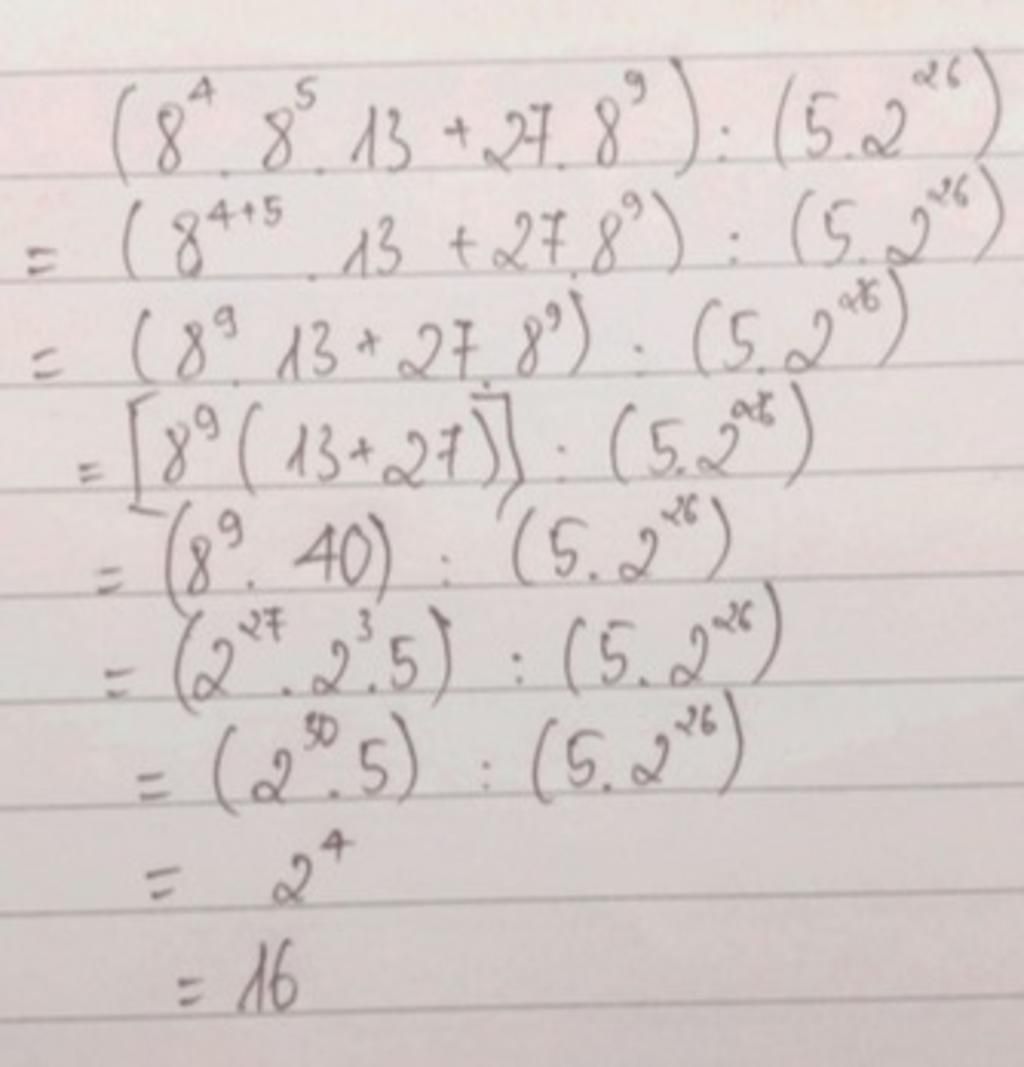 (8⁴ . 8⁵ . 13 + 27 . 8⁹) : (5 . 2²⁶)
= (8⁴⁺⁵ . 13 + 27 . 8⁹) : (5 . 2²⁶)
= (8⁹ . 13 + 27 . 8⁹) : (5 . 2²⁶)
= [8⁹ (13 + 27)] : (5 . 2²⁶)
= (8⁹ . 40) : (5 . 2²⁶)
= (2²⁷ . 2³ . 5) : (5 . 2²⁶)
= (2³⁰ . 5) : (5 . 2²⁶)
= 2⁴
= 16